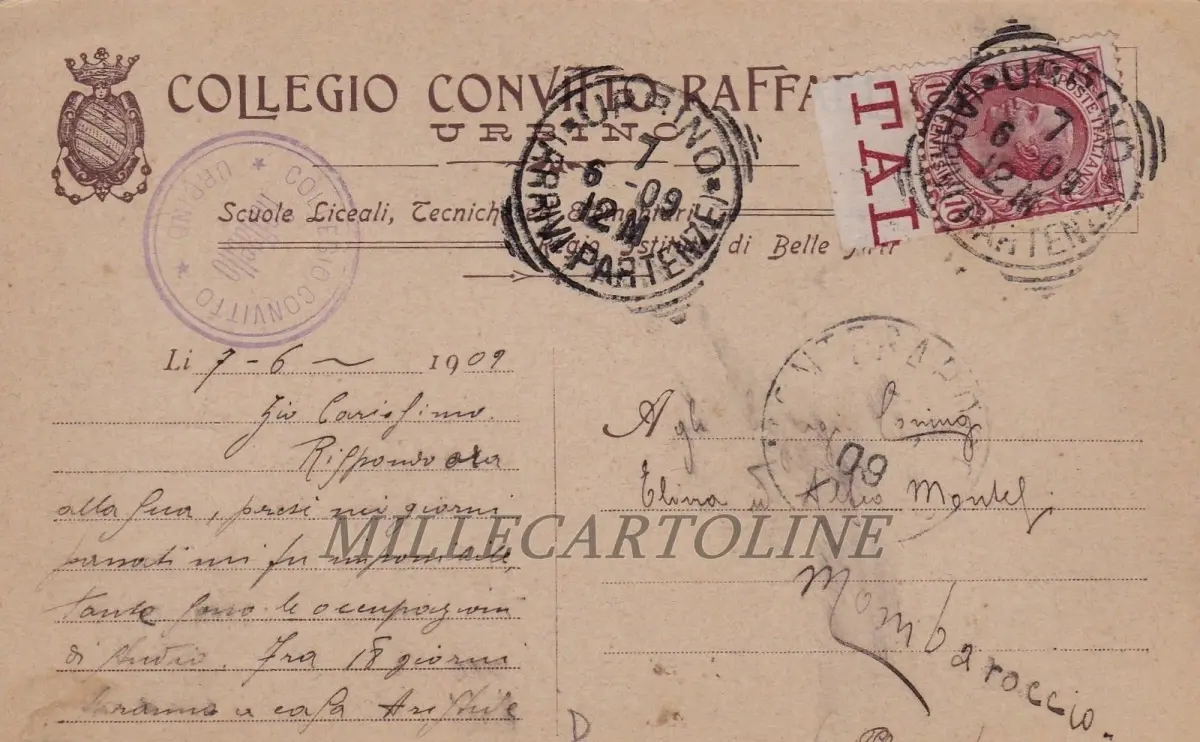 COLLEGIO CONVITTO RAFFAE
URBINO
Scuole Liceali, Tecniche ed Elementari
Regio Istituto di Belle Arti
COLLEGIO CONVITTO
URBINO
URBINO
7
6 09
12 M
ARRIVI PARTENZE
TAL
POSTE ITALIANE
10 CENTESIMI 10
URBINO
7
6 09
12 M
ARRIVI PARTENZE
09
Li 7-6 1909
Zio Carissimo.
Rispondo ora
alla sua, presi nei giorni
passati mi fu impossibile,
tante sono le occupazioni
di studio. Fra 18 giorni
saranno a casa Aristide
Agli
Elvira ed Montel
Mombaroccio.
MILLECARTOLINE
D